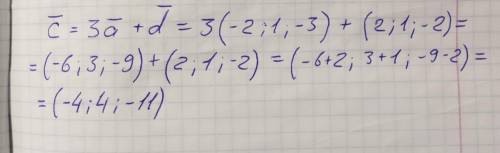 c̅ = 3a̅ + d̅ = 3(-2; 1; -3) + (2; 1; -2) =
= (-6; 3; -9) + (2; 1; -2) = (-6+2; 3+1; -9-2) =
= (-4; 4; -11)